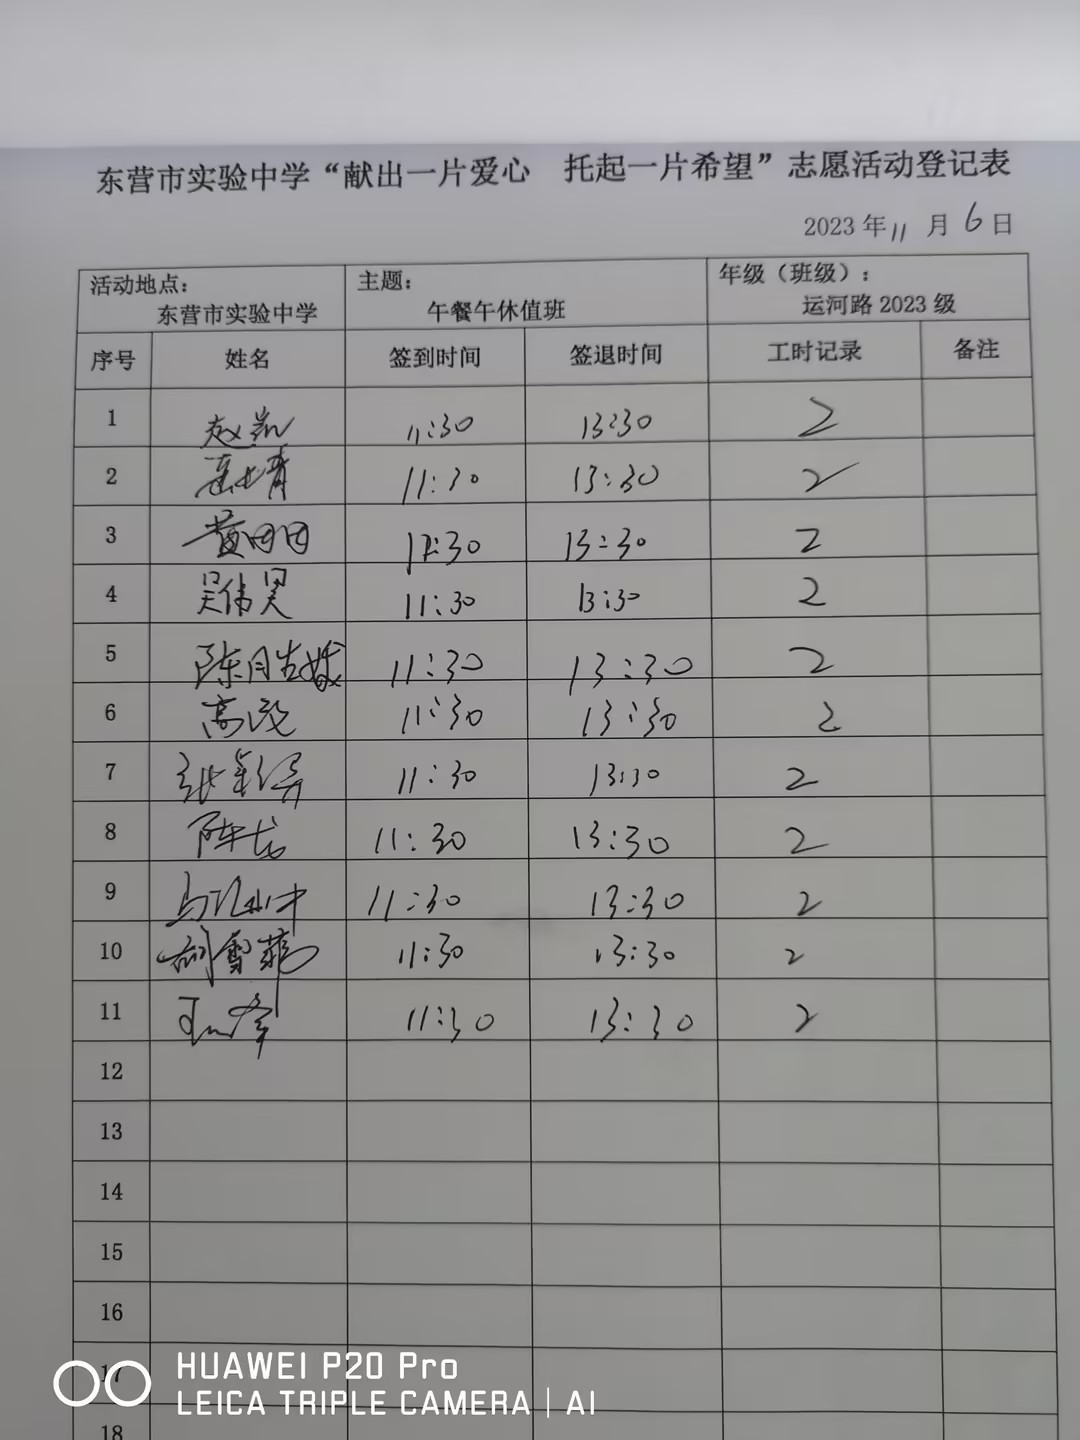 东营市实验中学“献出一片爱心 托起一片希望”志愿活动登记表
2023 年 11 月 6 日
活动地点: 主题: 年级（班级）:
东营市实验中学 午餐午休值班 运河路 2023 级
序号 姓名 签到时间 签退时间 工时记录 备注
1 赵凯 11:30 13:30 2
2 11:30 13:30 2
3 黄田田 11:30 13:30 2
4 吴伟昊 11:30 13:30 2
5 陈月 11:30 13:30 2
6 高 11:30 13:30 2
7 张 11:30 13:30 2
8 陈龙 11:30 13:30 2
9 11:30 13:30 2
10 胡雪菲 11:30 13:30 2
11 11:30 13:30 2
12
13
14
15
16
17
18
HUAWEI P20 Pro
LEICA TRIPLE CAMERA | AI